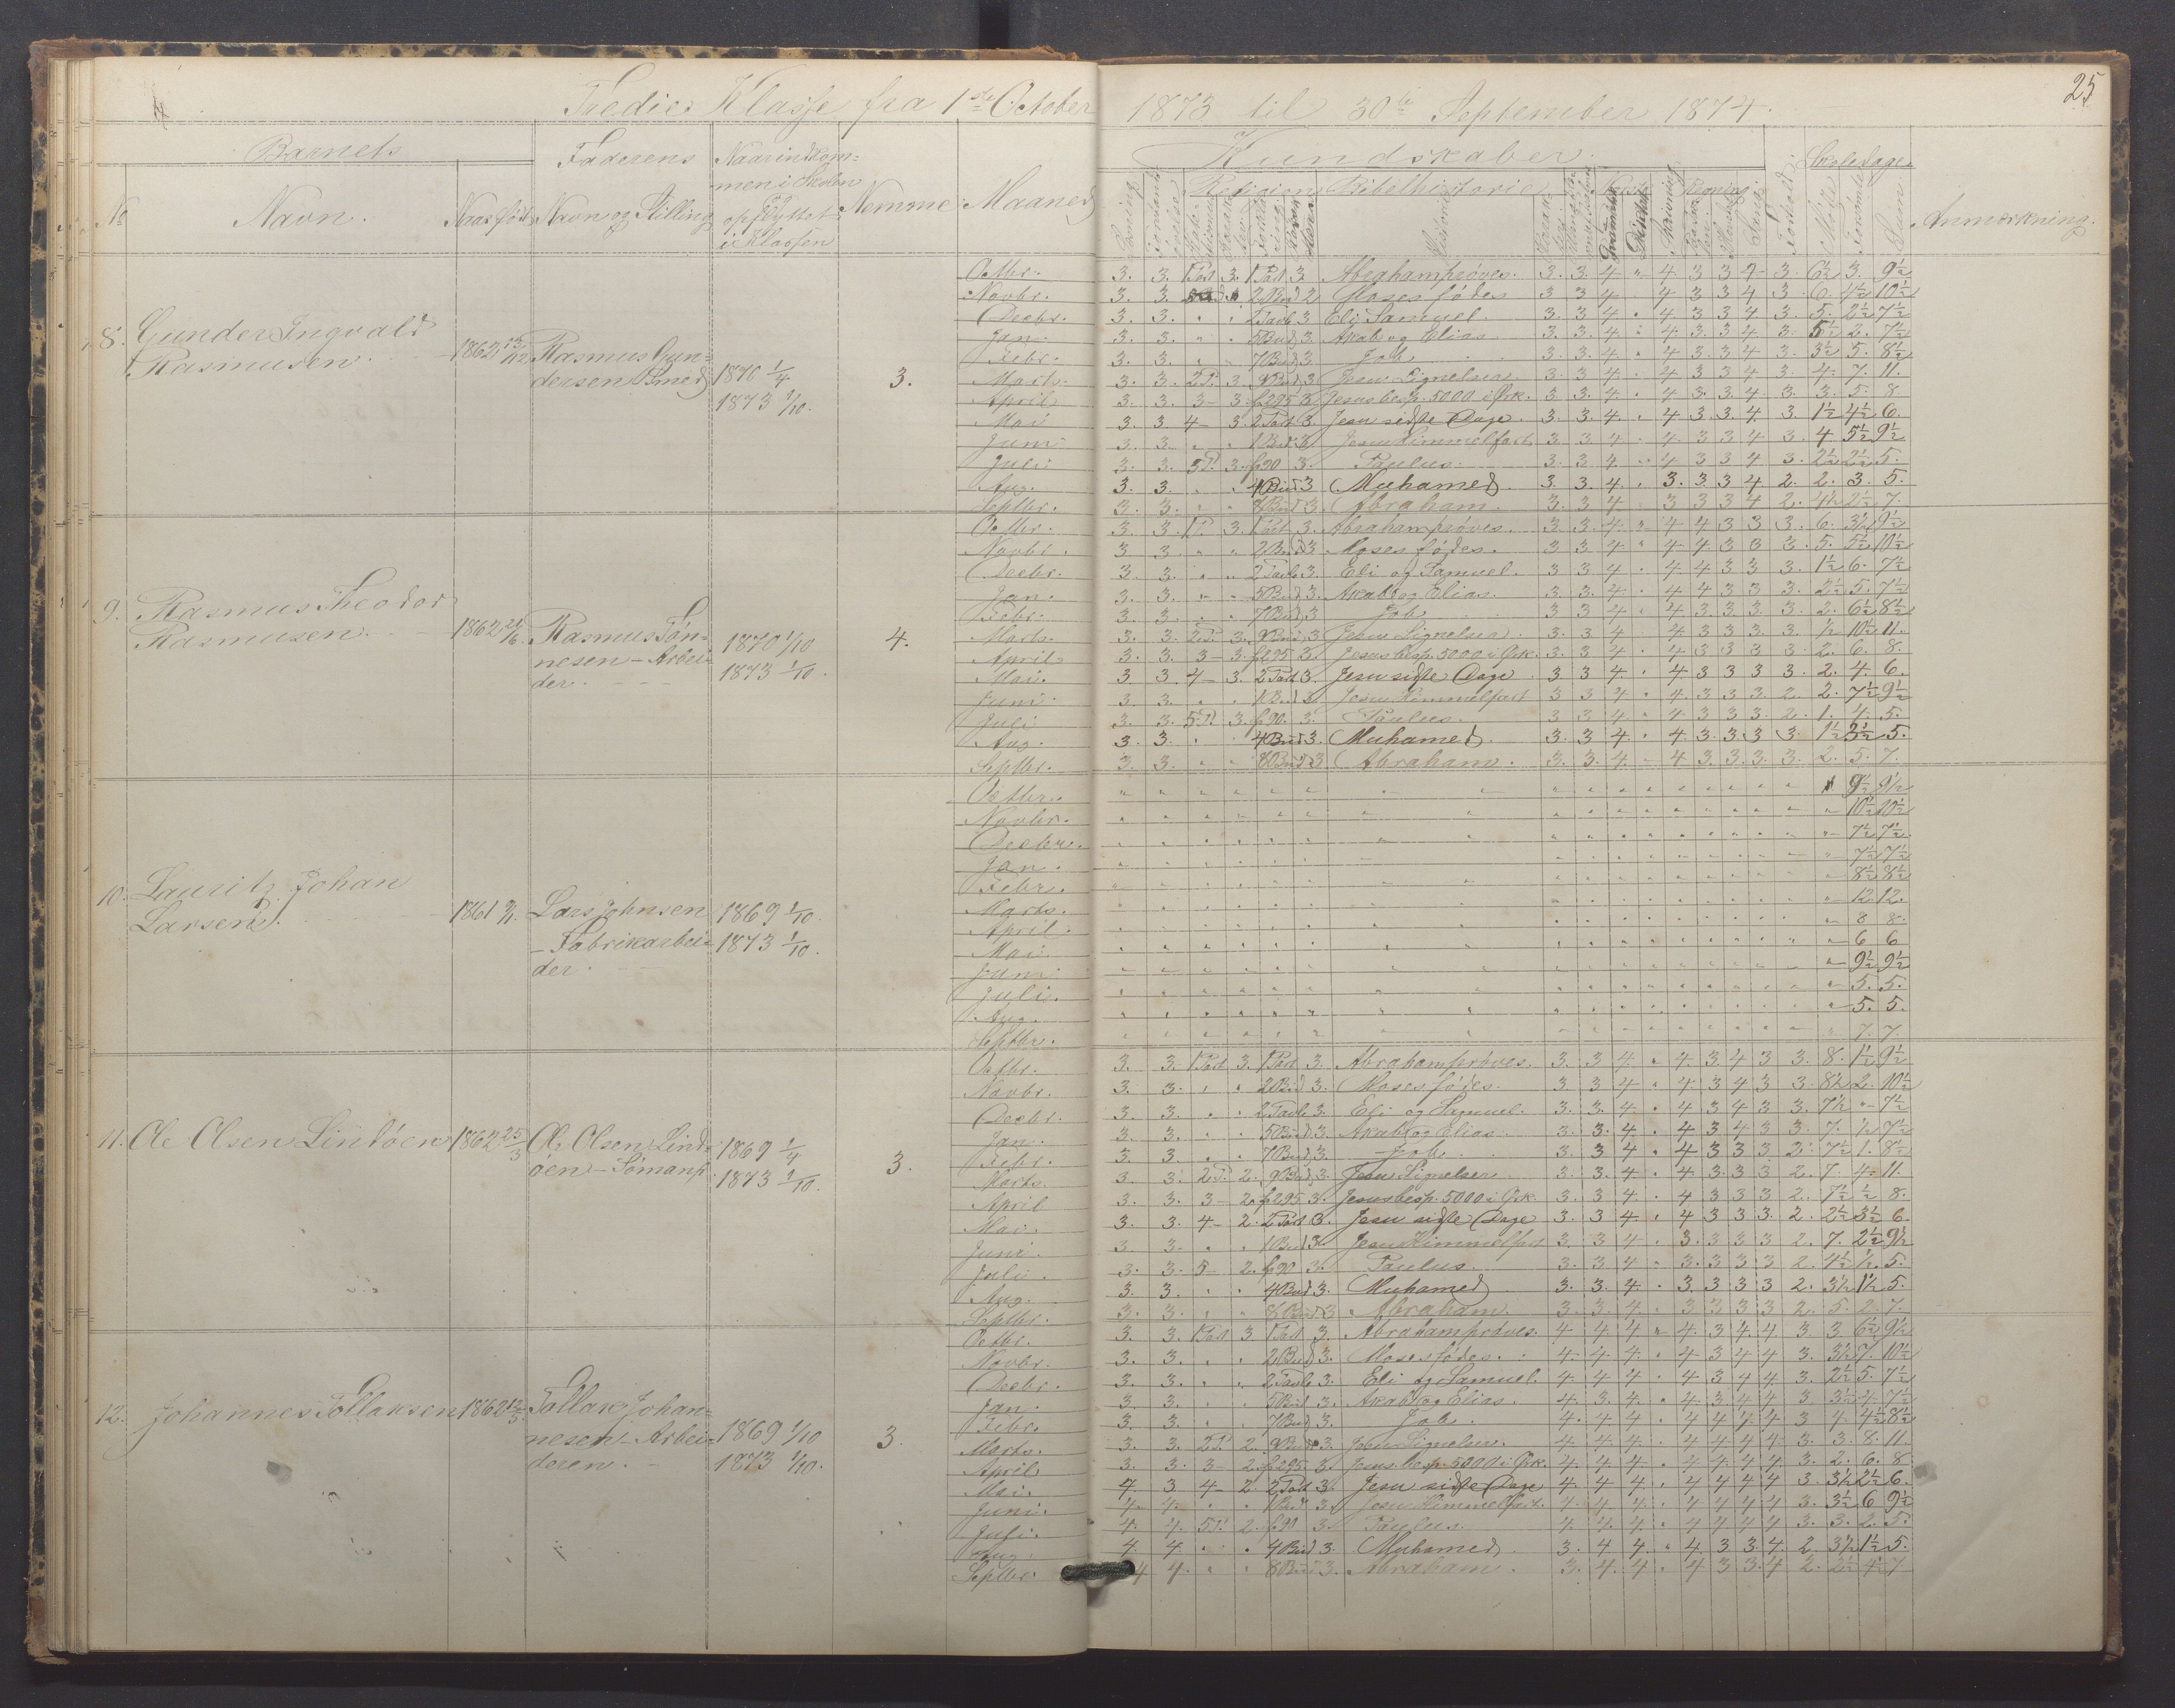 25
Tredie Klasse fra 1ste October 1873 til 30te September 1874.
Barnets
Faderens
Naar indkom-
men i Skolen
og
opflyttet
i Klassen
No
Navn.
Naar født
Navn og Stilling
Nemme
Maaned
Kundskaber.
Skoledage.
Religion
Bibelhistorie
Regning
Anmærkning.
8. Gunder Ingvald
Rasmusen.
1862 13/12
Rasmus Gun-
dersen Smed
1870 1/4
1873 1/10.
3.
Octbr. 3. 3. 1 Part 3. 1 Part 3 Abrahamprøves. 3. 3 4 " 4 3 3 4 3 6½ 3. 9½
Novbr. 3. 3. 2 Bud 2 Moses fødes 3 3 4 " 4 3 3 4 3. 6. 4½ 10½
Decbr. 3. 3. " " 2 Tavle 3 Eli Samuel. 3. 3 4 " 4 3 3 4 3. 5. 2½ 7½
Jan. 3. 3. " " 5 Bud 3 Akab og Elias 3. 3. 4 " 4 3. 3 4 3. 5½ 2. 7½
Febr. 3. 3. " " 7 Bud 3 Job 3. 3. 4 " 4 3. 3 4 3. 3½ 5. 8½
Marts. 3. 3. 2 P. 3. 9 Bud 3 Jesu Lignelser. 3. 3 4. " 4 3 3 4 3. 4. 7. 11.
April 3. 3. 3 – 3. f 295 3 Jesus besp. 5000 i Ørk. 3. 3. 4. " 4 3. 3 4. 3 3. 5. 8
Mai 3. 3. 4 – 3. 2 Part 3. Jesu sidste Dage. 3. 3. 4. " 4 3. 3. 4. 3 1½ 4½ 6.
Juni 3. 3. " " 1 Bud 3 Jesu Himmelfart 3. 3 4 " 4. 3 3 4 3. 4 5½ 9½
Juli 3. 3. 5 P. 3. f 90 3. Paulus. 3. 3 4 " 4 3 3 4 3. 2½ 2½ 5.
Aug. 3. 3. " " 4 Bud 3 Muhamed. 3. 3. 4. " 3. 3. 3 4 2. 2. 3. 5.
Septbr. 3. 3. " " 8 Bud 3. Abraham. 3. 3 4 " 3 3 3 4 2. 4½ 2½ 7.
9. Rasmus Theodor
Rasmusen.
1862 21/6.
Rasmus Tøn-
nesen – Arbei-
der.
1870 1/10
1873 1/10.
4.
Octbr. 3. 3. 1 P. 3. 1 Part 3. Abrahamprøves. 3. 3 4 " 4 4 3 3 3. 6. 3½ 9½
Novbr. 3 3. " " 2 Bud 3 Moses fødes. 3 3 4 " 4 4 3 3 3. 5. 5½ 10½
Decbr. 3. 3. " " 2 Tavle 3. Eli og Samuel. 3 3 4 " 4 4 3 3 3. 1½ 6. 7½
Jan. 3. 3. " " 5 Bud 3. Akab og Elias. 3 3 4 " 4 4 3 3 3. 2½ 5. 7½
Febr. 3. 3. " " 7 Bud 3 Job 3 3 4 " 4 3 3. 3. 3. 2. 6½ 8½
Marts. 3. 3. 2 P. 3. 9 Bud 3 Jesu Lignelser. 3. 3. 4 " 4. 3 3 3. 3 ½ 10½ 11.
April 3. 3. 3 – 3. f 295 3. Jesus besp. 5000 i Ørk. 3. 3 4 " 4 3 3 3 3. 2. 6. 8.
Mai. 3 3. 4 – 3. 2 Part 3. Jesu sidste Dage 3 3 4 " 4 3 3 3 3. 2. 4. 6.
Juni. 3. 3. " " 1 Bud 3 Jesu Himmelfart 3 3 4 " 4 3. 3 3. 2 2. 7½ 9½
Juli 3. 3. 5 P. 3. f 90. 3. Paulus. 3 3 4 " 4 3 3 3. 2. 1. 4. 5.
Aug. 3. 3. " " 4 Bud 3. Muhamed. 3. 3. 4 " 4 3. 3 3 3. 1½ 3½ 5.
Septbr. 3. 3. " " 8 Bud 3 Abraham. 3. 3. 4 " 4 3. 3. 3. 3. 2. 5. 7.
10. Lauritz Johan
Larsen.
1861
Lars Johnsen
– Fabrikarbei-
der.
1869 1/10.
1873 1/10.
Octbr. " 9½ 9½
Novbr. " 10½ 10½
Decbr. " 7½ 7½
Jan. " 7½ 7½
Febr. " 8½ 8½
Marts. " 12. 12.
April. " 8 8.
Mai. " 6 6
Juni. " 9½ 9½
Juli. " 5. 5.
Aug. " 5. 5.
Septbr. " 7. 7.
11. Ole Olsen Lindøen
1862 25/3
Ole Olsen Lind-
øen – Sømand
1869 1/4
1873 1/10.
3.
Octbr. 3. 3. 1 Part 3. 1 Part 3. Abrahamprøves. 3. 3 4 " 4. 3 4 3 3. 8. 1½ 9½
Novbr. 3. 3. " " 2 Bud 3. Moses fødes. 3 3 4 " 4 3 4 3 3 8½ 2. 10½
Decbr. 3. 3. " " 2 Tavle 3. Eli og Samuel. 3. 3. 4. " 4 3 4 3 3. 7½ " 7½
Jan. 3. 3. " " 5 Bud 3. Akab og Elias. 3. 3. 4. " 4 3 4 3 3. 7. ½ 7½
Febr. 3. 3. " " 7 Bud 3. Job 3. 3 4 " 4 3 3 3 2. 7½ 1. 8½
Marts. 3. 3. 2 P. 2. 9 Bud 3. Jesu Lignelser. 3. 3 4. " 4. 3. 3 3 2. 7. 4. 11.
April 3. 3. 3 – 2. f 295 3. Jesus besp. 5000 i Ørk. 3. 3 4 " 4 3 3 3 2. 7½ ½ 8.
Mai. 3. 3. 4 – 2. 2 Part 3. Jesu sidste Dage 3. 3 4 " 4 3 3 3. 2. 2½ 3½ 6
Juni. 3. 3. " " 1 Bud 3. Jesu Himmelfart 3. 3 4 " 3. 3 3 3 2. 7. 2½ 9½
Juli. 3. 3. 5 – 2. f 90 3. Paulus. 3. 3 4 " 3. 3 3 3 2. 4½ ½. 5.
Aug. 3. 3. " " 4 Bud 3. Muhamed. 3. 3. 4. " 3. 3 3 3 2. 3½ 1½ 5.
Septbr. 3. 3. " " 8 Bud 3 Abraham. 3. 3 4. " 3 3 3 3 2. 5. 2. 7.
12. Johannes Tollaksen
1862 12/5.
Tollak Johan-
nesen – Arbei-
deren.
1869 1/10
1873 1/10.
3.
Octbr. 3. 3. 1 Part 3 1 Part 3. Abrahamprøves. 4 4 4 " 4. 3 4. 4 3 3 6½ 9½
Novbr. 3. 3. " " 2 Bud 3. Moses fødes. 4. 4 4. " 4 3 4 4 3. 3½ 7. 10½
Decbr. 3. 3. " " 2 Tavle 3. Eli og Samuel. 4. 4 4. " 4 3 4 4 3. 2½ 5. 7½
Jan. 3. 3. " " 5 Bud 3. Akab og Elias. 4. 3. 4. " 4. 3 4 4 3 3½ 4. 7½
Febr. 3. 3. " " 7 Bud 3. Job. 4. 4 4. " 4 4 4 4 3 4. 4½ 8½
Marts. 3. 3. 2 P. 2. 9 Bud 3. Jesu Lignelser. 4. 4. 4. " 4 4 4 4. 3. 3. 8. 11.
April 3. 3. 3 – 2. f 295. 3. Jesus besp. 5000 i Ørk. 4. 4 4. " 4 4 4 4 3. 2. 6. 8
Mai. 4. 3 4 – 2. 2 Part 3. Jesu sidste Dage 4. 4 4. " 4 4 4 4 3. 3½ 2½ 6.
Juni. 4. 4. " " 1 Bud 3. Jesu Himmelfart. 4. 4 4. " 4 4 4 4 3. 3½ 6 9½
Juli. 4. 4. 5 P. 2. f 90 3. Paulus. 4. 4. 4. " 4 4 4 4 3. 3. 2. 5.
Aug. 4. 4. " " 4 Bud 3. Muhamed. 3. 4 4. " 4 3 3 4 2 3½ 1½ 5.
Septbr. 4 4. " " 8 Bud 3. Abraham. 3. 4. 4 " 4 3 3. 4 2. 2½ 4½ 7